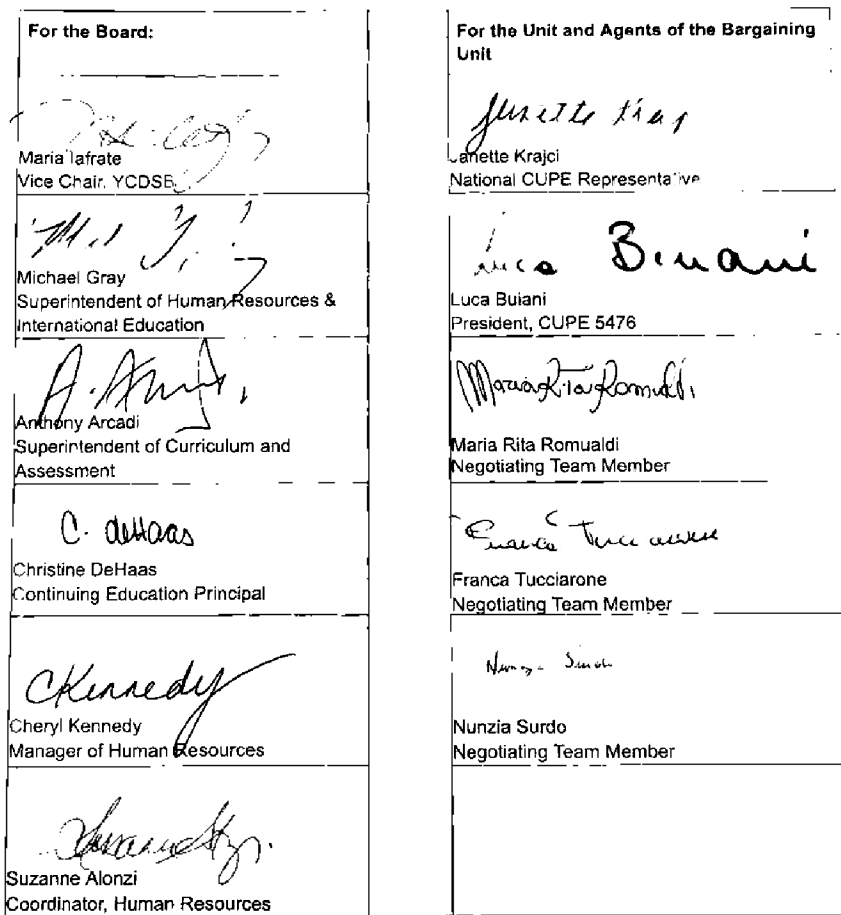 For the Board:
Maria Iafrate
Vice Chair, YCDSB
Michael Gray
Superintendent of Human Resources &
International Education
A. A
Anthony Arcadi
Superintendent of Curriculum and
Assessment
C. deHaas
Christine DeHaas
Continuing Education Principal
CKennedy
Cheryl Kennedy
Manager of Human Resources
Suzanne Alonzi
Coordinator, Human Resources
For the Unit and Agents of the Bargaining
Unit
Janette Krajci
National CUPE Representative
Luca Buiani
Luca Buiani
President, CUPE 5476
Maria Rita Romualdi
Maria Rita Romualdi
Negotiating Team Member
Franca Tucciarone
Franca Tucciarone
Negotiating Team Member
Nunzia Surdo
Negotiating Team Member